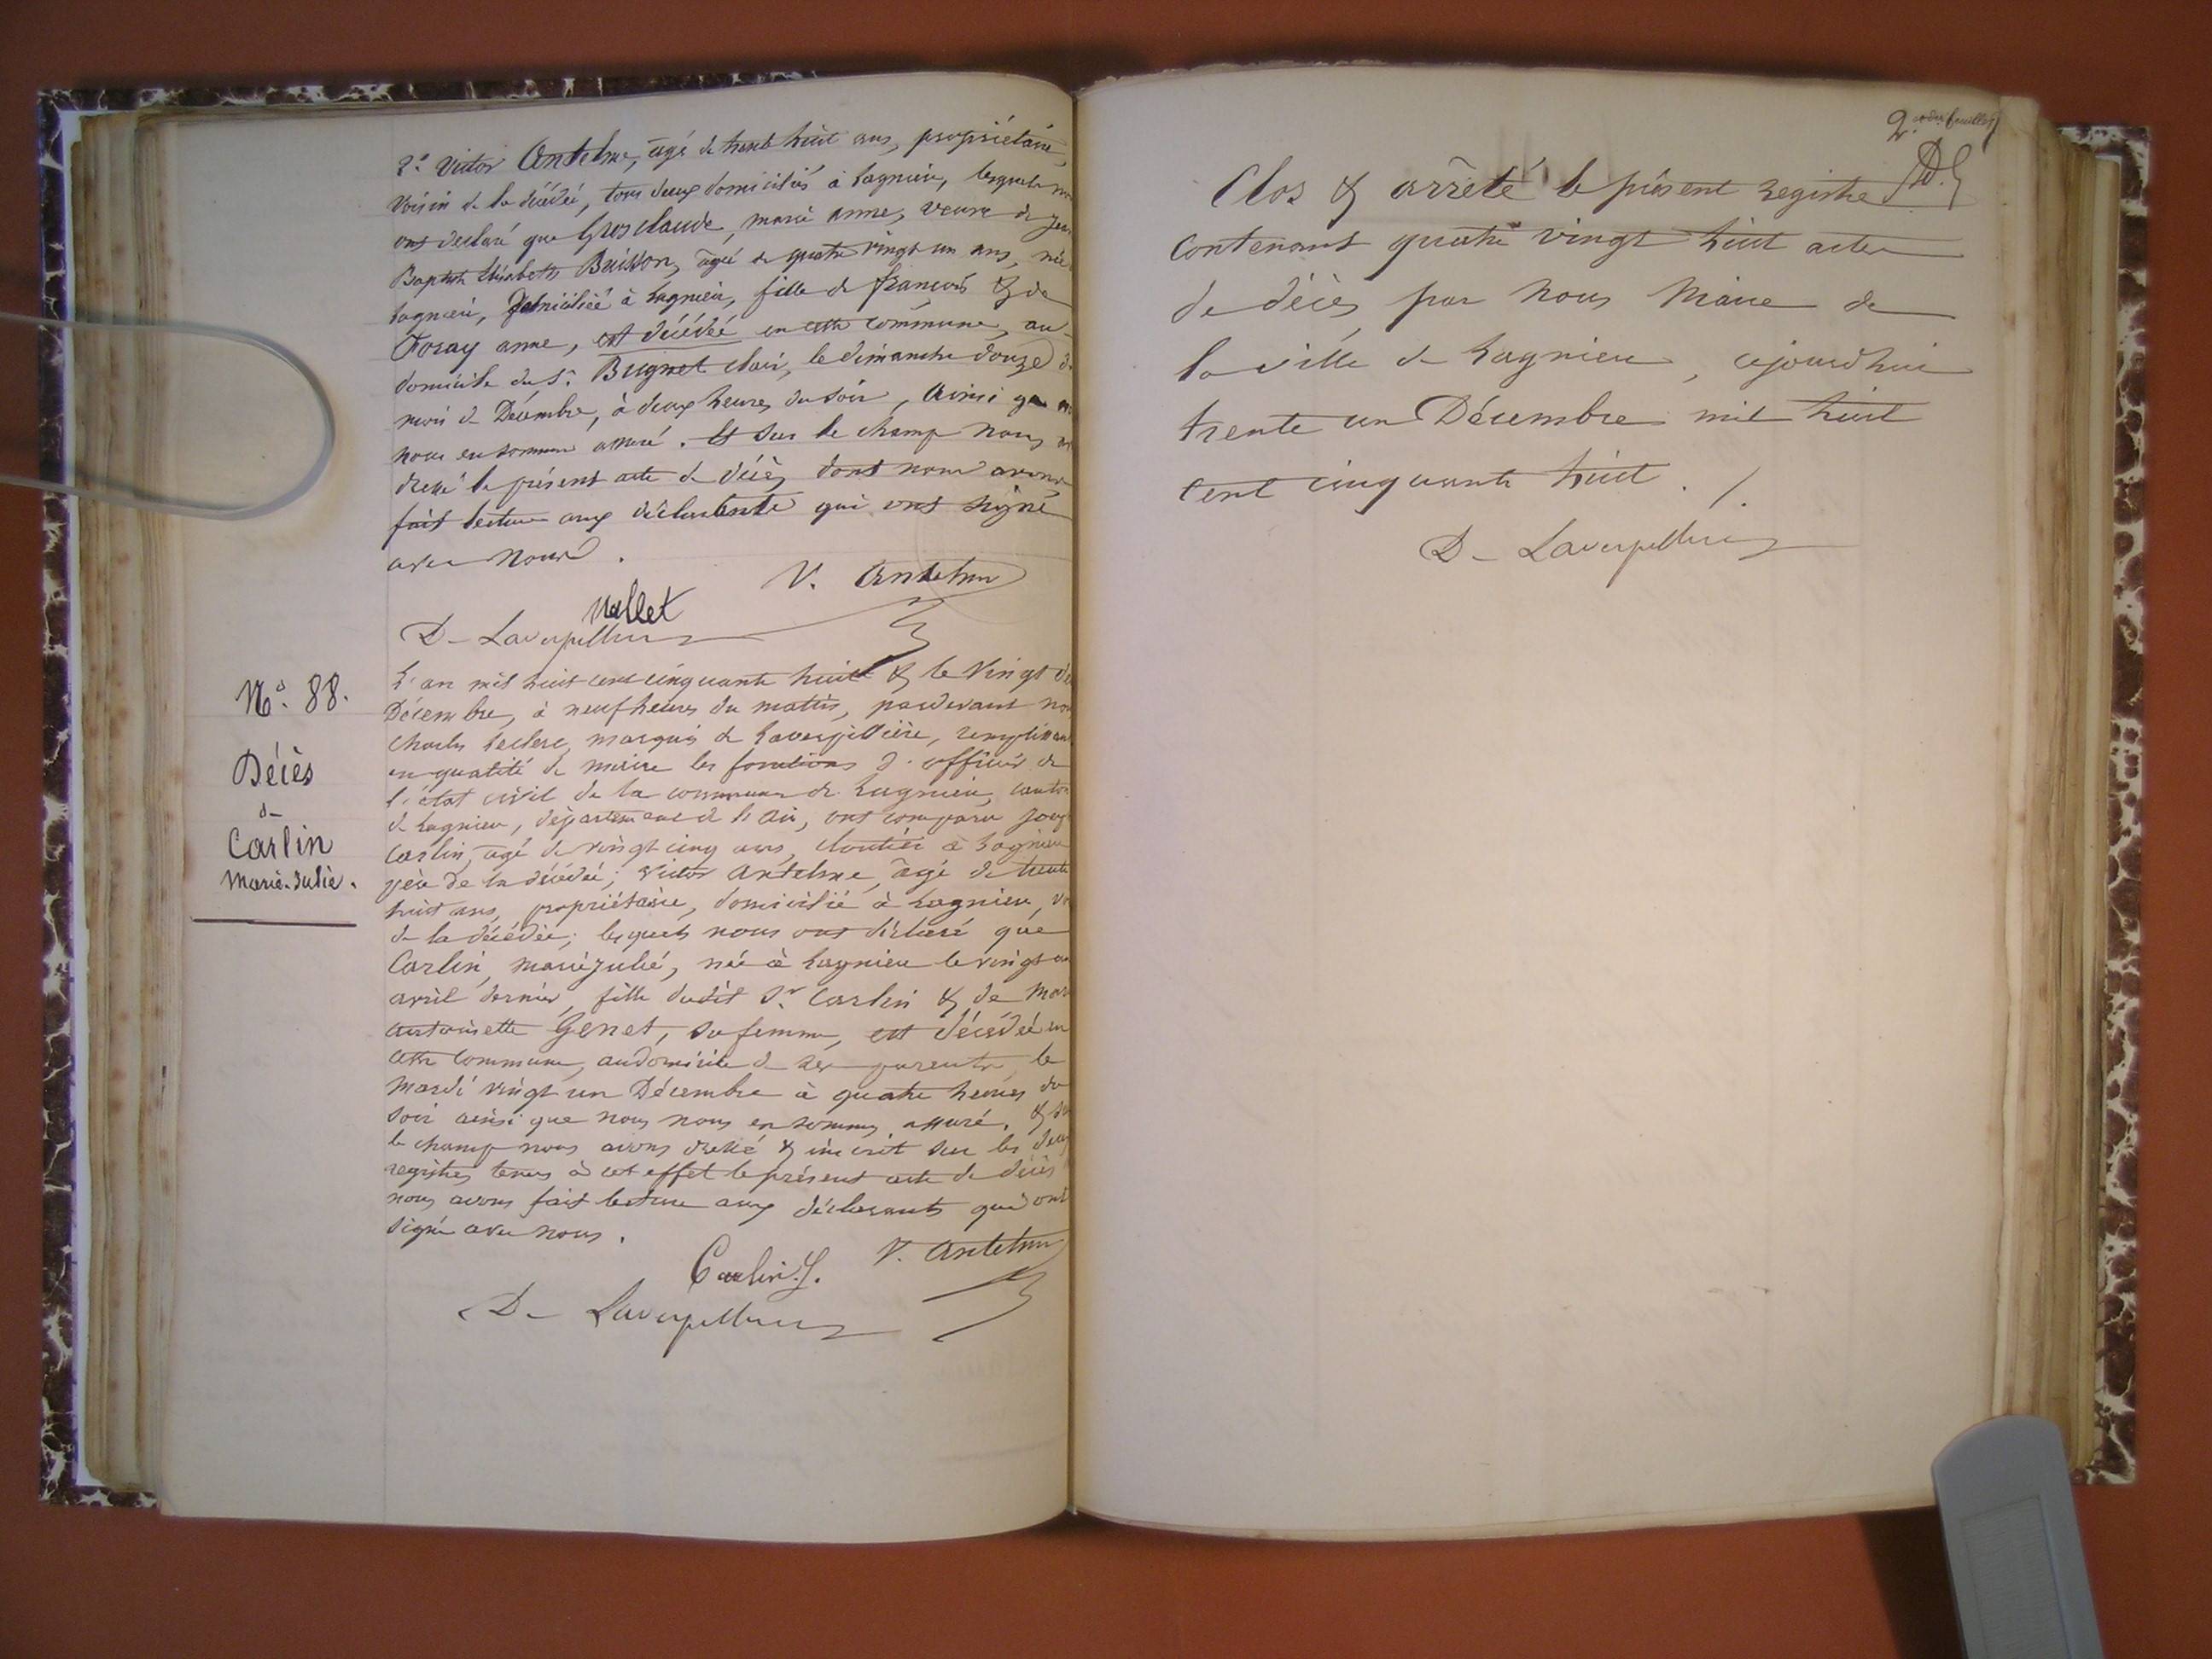 2° Victor Antelme, âgé de trente huit ans, propriétaire,
voisin de la décédée, tous deux domiciliés à Lagnieu, lesquels
ont déclaré que Grosclaude, marie anne, veuve de
Baptiste Elisabeth Buisson, âgée de quatre vingt un ans, née
Lagnieu, domiciliée à Lagnieu, fille de françois & de
anne, est décédée en cette commune, au
domicile du Sr Bugnet clair, le dimanche douze
mois de Décembre, à deux heures du soir, Ainsi que
nous en sommes assuré. Et sur le champ nous
dressé le présent acte de décès dont nous avons
fait lecture aux déclarants qui ont signé
avec nous.
V. Antelme
Mallet
D- Laverpillière
N°. 88.
Décès
de
Carlin
Marie-Julie.
L'an mil huit cent cinquante huit & le vingt
Décembre, à neuf heures du matin, pardevant
Charles Leclerc, marquis de Laverpillière, remplissant
en qualité de maire les fonctions d'officier de
l'état civil de la commune de Lagnieu, canton
de Lagnieu, département de l'Ain, ont comparu
Carlin, âgé de vingt cinq ans, cloutier à Lagnieu
père de la décédée; Victor Antelme, âgé de trente
huit ans, propriétaire, domicilié à Lagnieu,
de la décédée; lesquels nous ont déclaré que
Carlin, marie julie, née à Lagnieu le vingt
avril dernier, fille dudit Sr Carlin & de
Antoinette Genet, sa femme, est décédée en
cette commune, au domicile de ses parents, le
mardi vingt un Décembre à quatre heures du
soir ainsi que nous nous en sommes assuré. &
le champ nous avons dressé & inscrit sur les deux
registres tenus à cet effet le présent acte de décès
nous avons fait lecture aux déclarants qui ont
signé avec nous.
Carlin J. V. Antelme
D- Laverpillière
2e et der. feuillet
D.L
Clos & arrêté le présent registre
contenant quatre vingt huit actes
de décès par nous Maire de
la ville de Lagnieu, cejourd'hui
trente un Décembre mil huit
cent cinquante huit ./.
D- Laverpillière